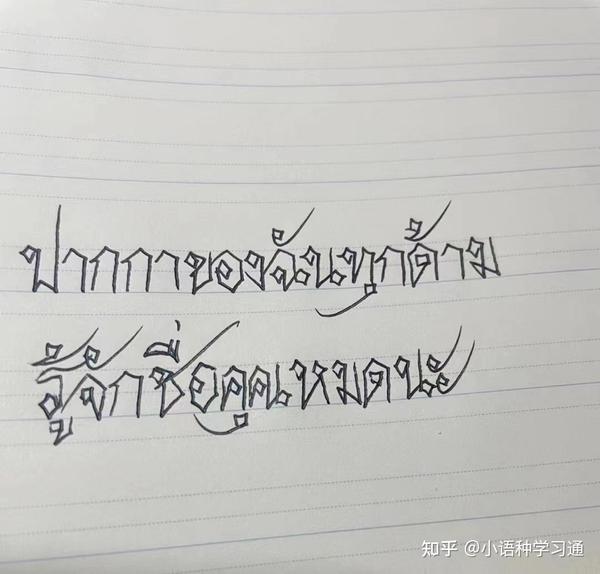 ปากกาของฉันทุกด้าม
รู้จักชื่อคุณหมดนะ
知乎 @小语种学习通